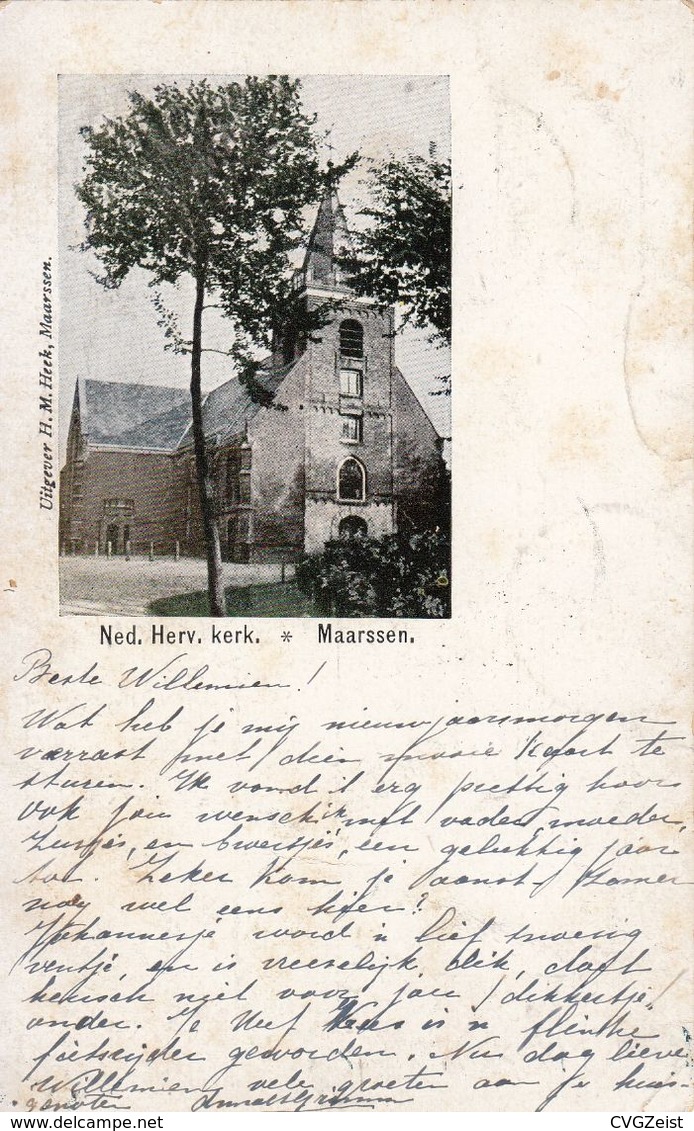 Uitgever H. M. Heek, Maarssen.
Ned. Herv. kerk. * Maarssen.
Beste Willemien!
Wat heb je mij nieuwjaarsmorgen
verrast met dien mooie kaart te
sturen. Ik vond 't erg prettig hoor
ook jou wensch ik met vader, moeder,
Zusjes, en broertjes, een gelukkig jaar
toe. Zeker kom je aanst. Zomer
nog wel eens hier?
Johannesje word 'n lief snoezig
ventje, en is vreeselijk dik, doch
heusch niet voor jou / dikkertje!
onder. Je Neef Kees is 'n flinke
fietsrijder geworden. Nu dag lieve
Willemien, vele groeten aan je huis-
genoten
CVGZeist